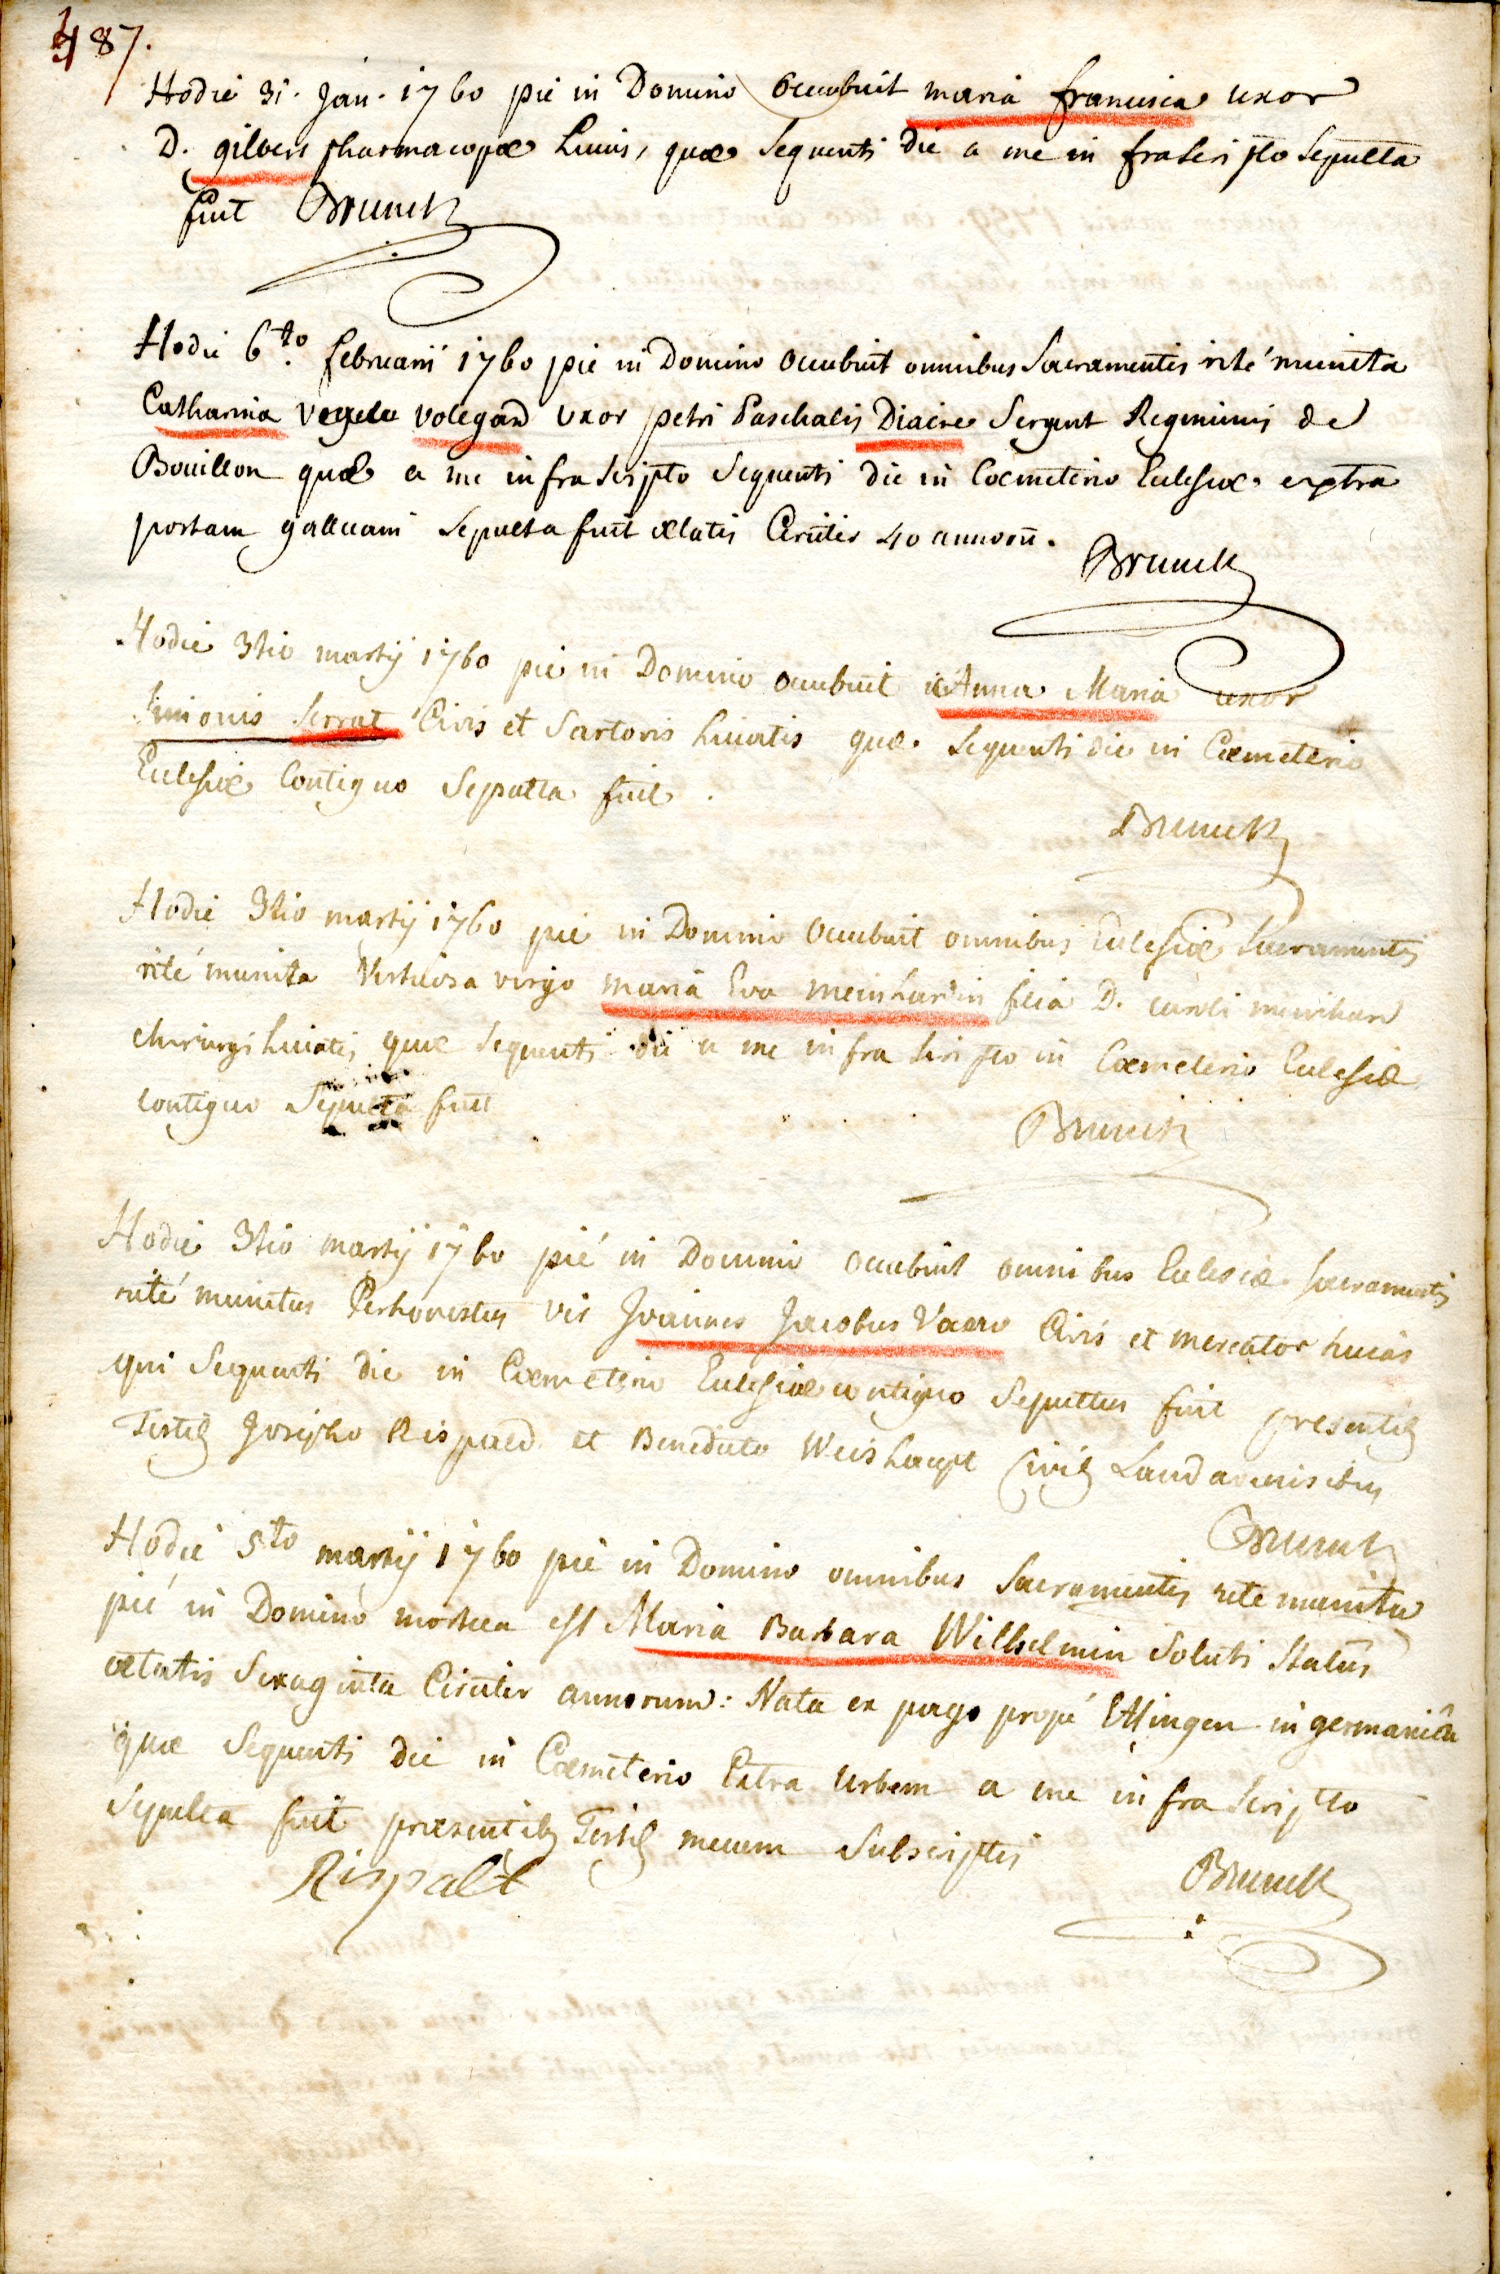 487.
Hodie 31. Jan. 1760 pie in Domino occubuit maria francisca uxor
D. gilbert pharmacopœ huius, quœ sequenti die a me infrascripto sepulta
fuit Brunck
Hodie 6to. februarii 1760 pie in Domino occubuit omnibus Sacramentis rité munita
Catharina volegard uxor petri Paschalis Diacre Sergent Regiminis de
Bouillon quœ a me infrascripto sequenti die in Cœmeterio Ecclesiœ extra
portam gallicam sepulta fuit œtatis Circiter 40 annorū.
Brunck
Hodie 3tio martij 1760 pie in Domino occubuit Anna Maria uxor
Simonis Serrat Civis et Sartoris huiatis quœ sequenti die in Cœmeterio
Ecclesiœ Contiguo Sepulta fuit.
Brunck
Hodie 3tio martij 1760 pie in Domino occubuit omnibus Ecclesiœ Sacramentis
rité munita Virtuosa virgo maria Eva meinhardin filia D. caroli meinhard
chirurgi huiatis quœ sequenti die a me infra scripto in Cœmeterio Ecclesiœ
contiguo Sepulta fuit
Brunck
Hodie 3tio martij 1760 pié in Domino occubuit omnibus Ecclesiœ sacramentis
rité munitus Perhonestus vir Joannes Jacobus Vacano Civis et mercator huias
qui sequenti die in Cœmeterio Ecclesiœ contiguo Sepultus fuit presentib
Testib Josepho Rispald et Benedicto Weishaupt Civib Landaviensibus
Brunck
Hodie 5to martij 1760 pie in Domino omnibus Sacramentis rite munita
pié in Domino mortua est Maria Barbara Wilhelmin Soluti Statûs
œtatis Sexaginta Circiter annorum: Nata ex pago propé Ettlingen in germaniâ
quœ sequenti die in Cœmeterio Extra Urbem a me infra scripto
sepulta fuit prœsentib Testib mecum subscriptis
Rispalt Brunck